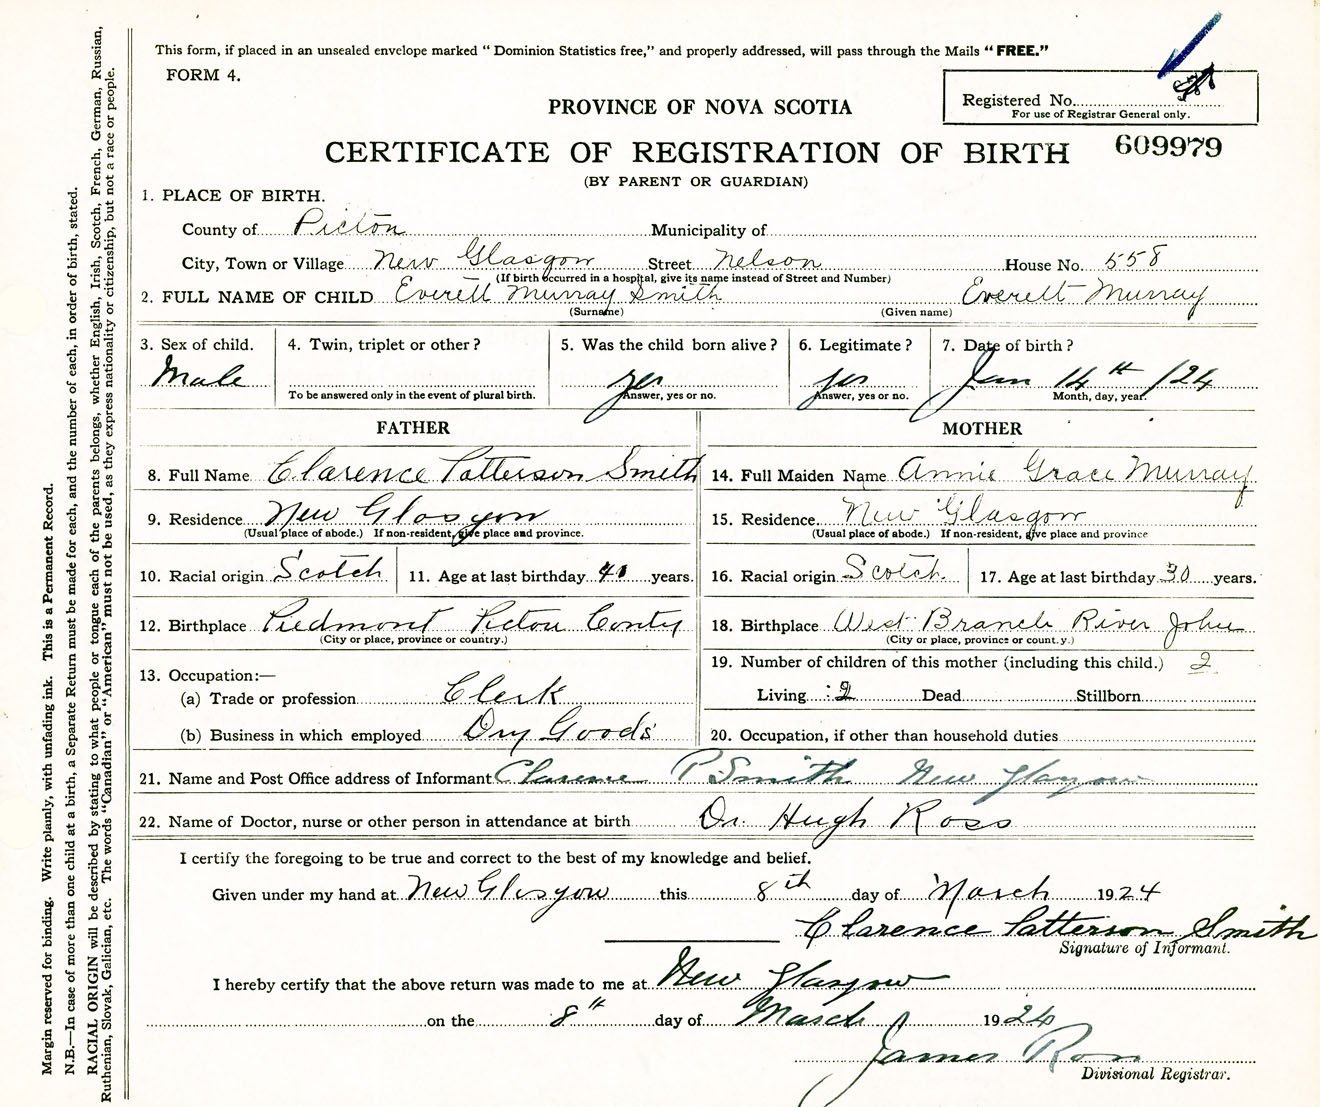 This form, if placed in an unsealed envelope marked "Dominion Statistics free," and properly addressed, will pass through the Mails "FREE."
FORM 4.
Registered No.
For use of Registrar General only.
PROVINCE OF NOVA SCOTIA
CERTIFICATE OF REGISTRATION OF BIRTH 609979
(BY PARENT OR GUARDIAN)
1. PLACE OF BIRTH.
County of Picton Municipality of
City, Town or Village New Glasgow Street Nelson House No. 558
(If birth occurred in a hospital, give its name instead of Street and Number)
2. FULL NAME OF CHILD Everett Murray Smith Everett Murray
(Surname) (Given name)
3. Sex of child. 4. Twin, triplet or other? 5. Was the child born alive? 6. Legitimate? 7. Date of birth?
Male yes yes Jan 14th /24
To be answered only in the event of plural birth. Answer, yes or no. Answer, yes or no. Month, day, year.
FATHER MOTHER
8. Full Name Clarence Patterson Smith 14. Full Maiden Name Annie Grace Murray
9. Residence New Glasgow 15. Residence New Glasgow
(Usual place of abode.) If non-resident, give place and province. (Usual place of abode.) If non-resident, give place and province
10. Racial origin Scotch 11. Age at last birthday 41 years. 16. Racial origin Scotch. 17. Age at last birthday 30 years.
12. Birthplace Piedmont Picton Conty 18. Birthplace West Branch River John
(City or place, province or country.) (City or place, province or country.)
19. Number of children of this mother (including this child.) 2
13. Occupation:—
(a) Trade or profession Clerk Living 2 Dead Stillborn
(b) Business in which employed Dry Goods 20. Occupation, if other than household duties
21. Name and Post Office address of Informant Clarence P Smith New Glasgow
22. Name of Doctor, nurse or other person in attendance at birth Dr. Hugh Ross
I certify the foregoing to be true and correct to the best of my knowledge and belief.
Given under my hand at New Glasgow this 8th day of March 1924
Clarence Patterson Smith
Signature of Informant.
I hereby certify that the above return was made to me at New Glasgow
on the 8th day of March 1924
James Ross
Divisional Registrar.
Margin reserved for binding. Write plainly, with unfading ink. This is a Permanent Record.
N.B.—In case of more than one child at a birth, a Separate Return must be made for each, and the number of each, in order of birth, stated.
RACIAL ORIGIN will be described by stating to what people or tongue each of the parents belongs, whether English, Irish, Scotch, French, German, Russian,
Ruthenian, Slovak, Galician, etc. The words "Canadian" or "American" must not be used, as they express nationality or citizenship, but not a race or people.